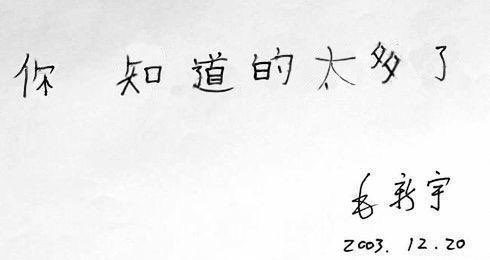 你 知道的太多了
毛新宇
2003.12.20